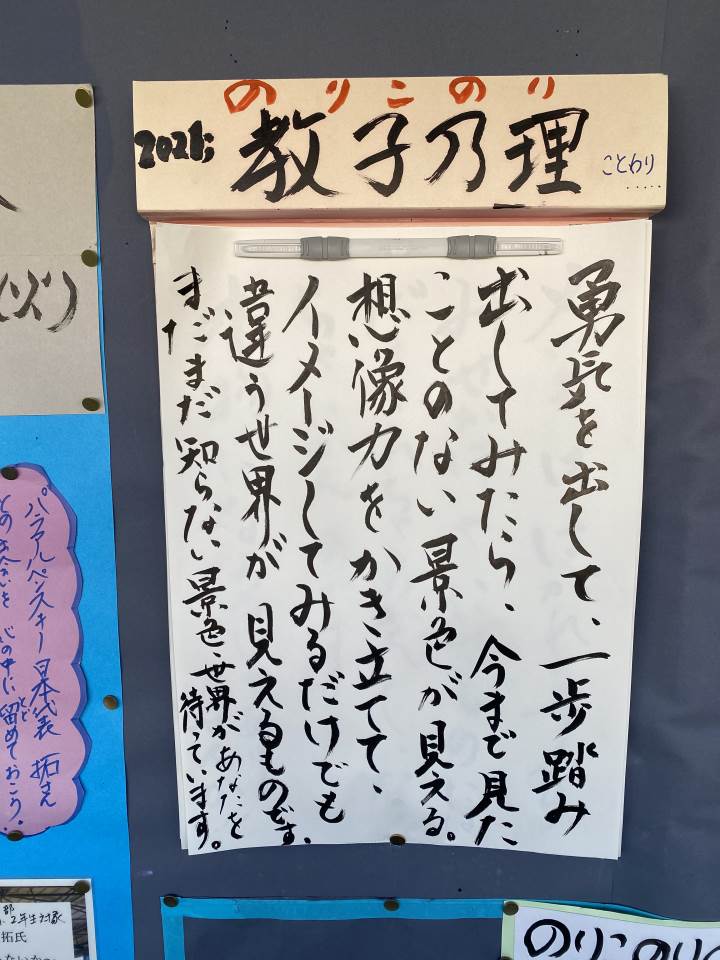 のりこのり
2021;
教子乃理
ことわり
勇気を出して、一歩踏み
出してみたら、今まで見た
ことのない景色が見える。
想像力をかき立てて、
イメージしてみるだけでも
違うせ界が見えるものです。
まだまだ知らない景色・世界があなたを
待っています。
(火)
パラアルペンスキー日本代表 拓さん
との出会いを 心の中に留めておこう。
とど
2年生対象
拓氏
のりこのりの